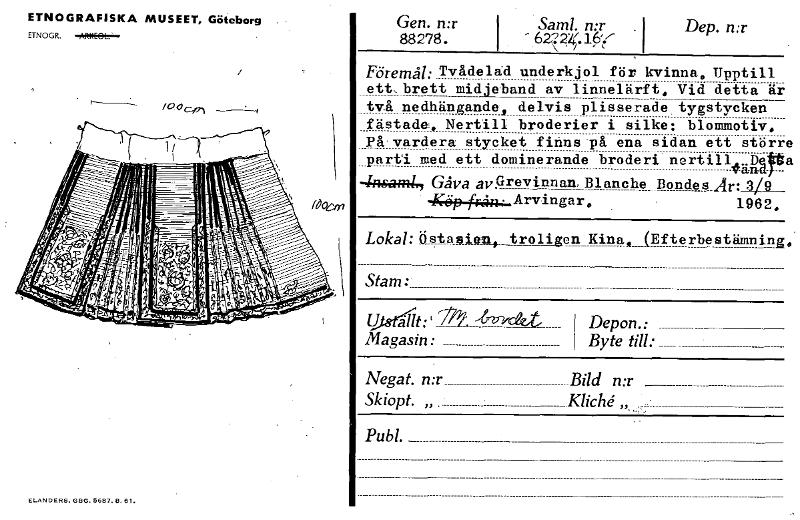 ETNOGRAFISKA MUSEET, Göteborg
ETNOGR. ARKEOL.
100cm
100cm
ELANDERS. GBG. 5687. 8. 61.
Gen. n:r
88278.
Saml. n:r
62.24.16.
Dep. n:r
Föremål: Tvådelad underkjol för kvinna. Upptill
ett brett midjeband av linnelärft. Vid detta är
två nedhängande, delvis plisserade tygstycken
fästade. Nertill broderier i silke: blommotiv.
På vardera stycket finns på ena sidan ett större
parti med ett dominerande broderi nertill. Detta
vänd)
Insaml., Gåva av Grevinnan Blanche Bondes År: 3/9
Köp från: Arvingar. 1962.
Lokal: Östasien, troligen Kina. (Efterbestämning.
Stam:
Utställt: TM. bordet
Depon.:
Magasin:
Byte till:
Negat. n:r
Bild n:r
Skiopt. „
Kliché „
Publ.